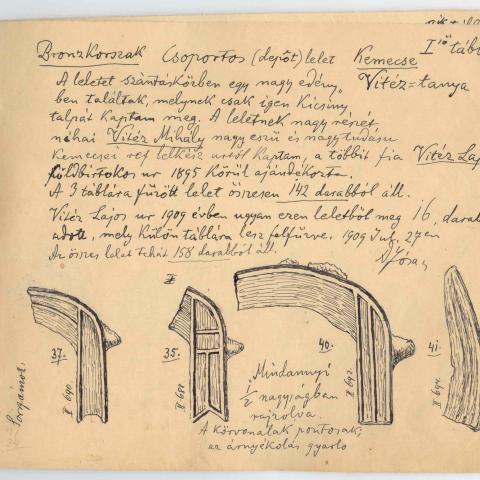 Bronzkorszak Csoportos (depôt) lelet Kemecse Iső tábl
A leletet szántásközben egy nagy edény„ Vitéz=tanya
ben találtak, melynek csak igen kicsiny
talpát kaptam meg. A leletnek nagy részét
néhai Vitéz Mihály nagy eszű és nagy tudásu
Kemecsei ref lelkész urtól kaptam, a többit fia Vitéz Laj
földbirtokos ur 1895 körül ajándékozta.
A 3 táblára fűzött lelet összesen 142 darabból áll.
Vitéz Lajos ur 1909 évben ugyan ezen leletből még 16, darab
adott, mely külön táblára lesz felfűzve. 1909 Jul. 27én
Az összes lelet tehát 158 darabból áll. Jósa
37.
II 690
35.
II 688
40.
II 692.
41.
II 694.
Mindannyi
1/2 nagyságban
rajzolva.
A körvonalak pontosak;
az árnyékolás gyarló